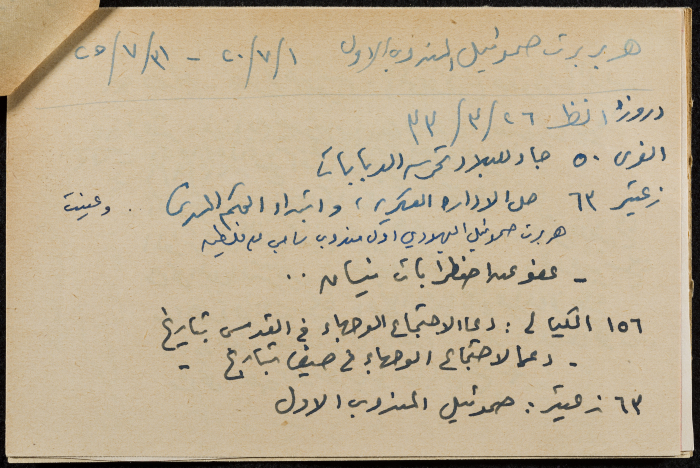 هربرت صموئيل المندوب الاول ٢٠/٧/١ – ٢٥/٧/٣١
دروزة انظر ٢٦/٣/٣٣
الغوري ٥٠ جاء للبلاد تحرسه الدبابات
زعيتر ٦٣ حل الادارة العسكرية، وابتداء الحكم المدني .. وعينت
هربرت صموئيل اليهودي اول مندوب سامي لفلسطين
– عفو عن اضطرابات نيسان ..
١٥٦ الكيالي : دعا الاجتماع الوجهاء في القدس بتاريخ
– دعا لاجتماع الوجهاء في حيفا بتاريخ –
٦٣ زعيتر : صموئيل المندوب الاول